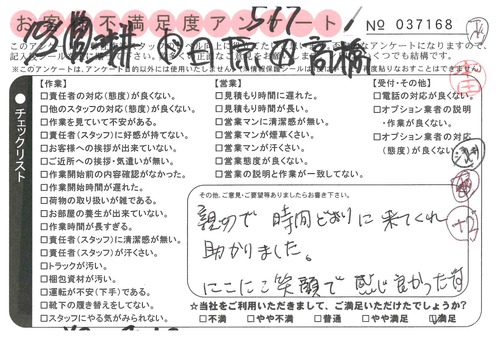 お客様不満足度アンケート
567
No 037168
高橋
●チェックリスト
【作業】
□責任者の対応(態度)が良くない。
□他のスタッフの対応(態度)が良くない。
□作業を見ていて不安がある。
□責任者(スタッフ)に好感が持てない。
□お客様への挨拶が出来ていない。
□ご近所への挨拶・気遣いが無い。
□作業開始前の内容確認がなかった。
□作業開始時間が遅れた。
□荷物の取り扱いが雑である。
□お部屋の養生が出来ていない。
□作業時間が長すぎる。
□責任者(スタッフ)に清潔感が無い。
□責任者(スタッフ)が汗くさい。
□トラックが汚い。
□梱包資材が汚い。
□運転が不安(下手)である。
□靴下の履き替えをしてない。
□スタッフにやる気がみられない。
【営業】
□見積もり時間に遅れた。
□見積もり時間が長い。
□営業マンに清潔感が無い。
□営業マンが煙草くさい。
□営業マンが汗くさい。
□営業態度が良くない。
□営業の説明と作業が一致してない。
【受付・その他】
□電話の対応が良くない。
□オプション業者の説明
・作業が良くない。
□オプション業者の対応
(態度)が良くない。
その他、ご意見・ご要望等ありましたらお書き下さい。
時間どおりに来てくれ
助かりました。
にこにこ笑顔で感じ良かったです
☆当社をご利用いただきまして、ご満足いただけたでしょうか?
□不満 □やや不満 □普通 □やや満足 ☑満足